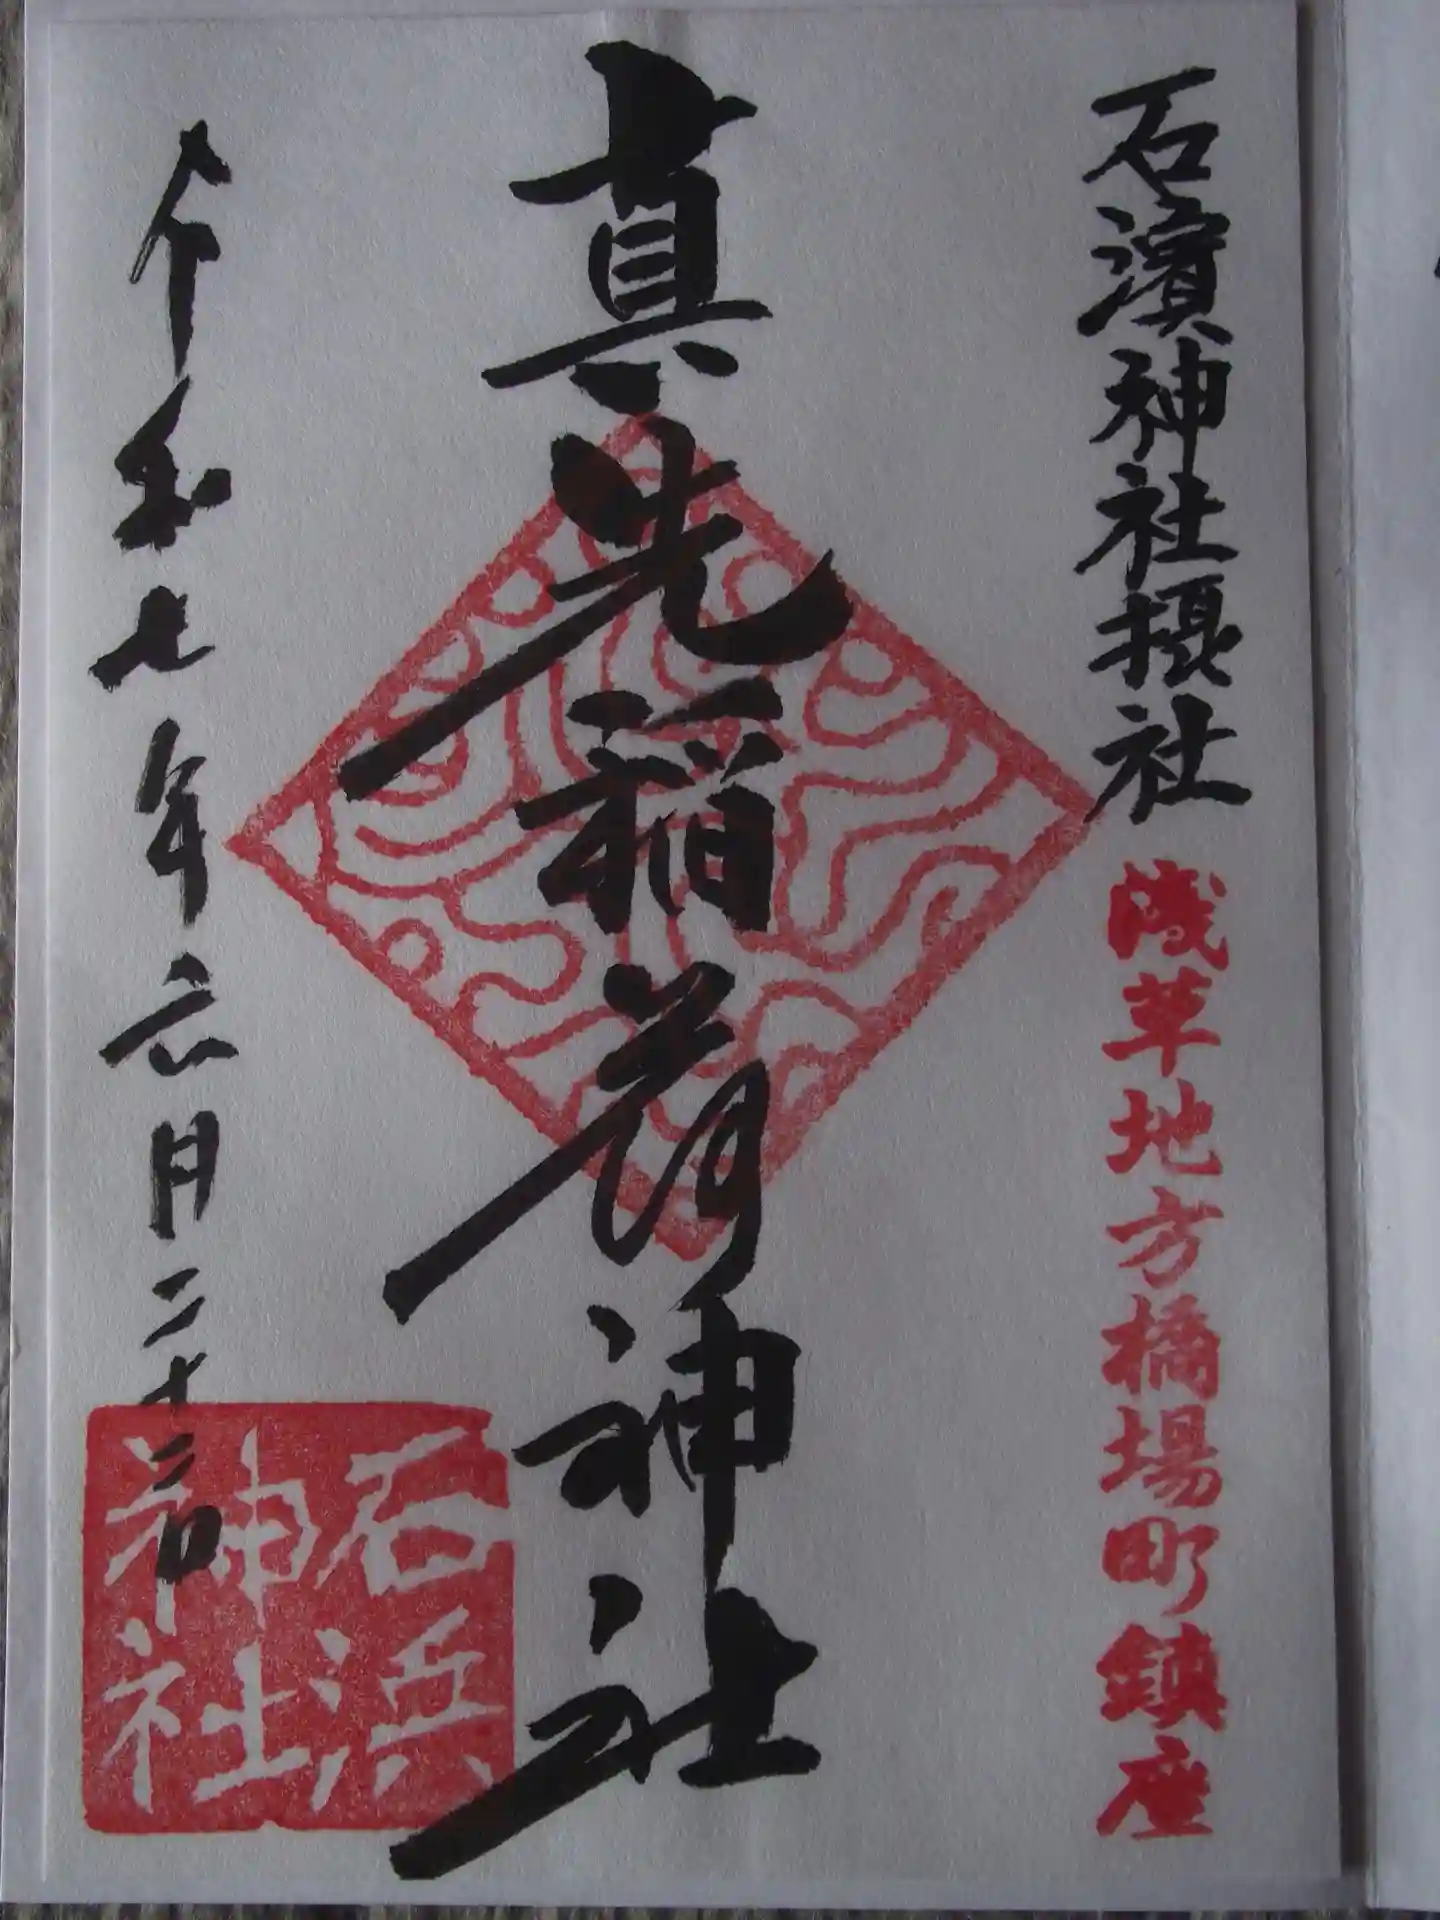 石濱神社摂社
浅草地方橋場町鎮座
真先稲荷神社
令和七年六月二十二日
石浜
神社